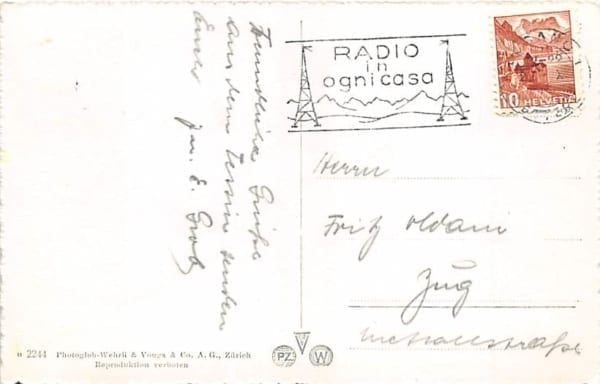 Freundliche Grüße
aus dem Tessin senden
Euch Fam. E. Grob
RADIO
in
ogni casa
10 HELVETIA
Herrn
Fritz Oldani
Zug
2244 Photoglob-Wehrli & Vouga & Co. A. G., Zürich
Reproduktion verboten
PZ
V
W